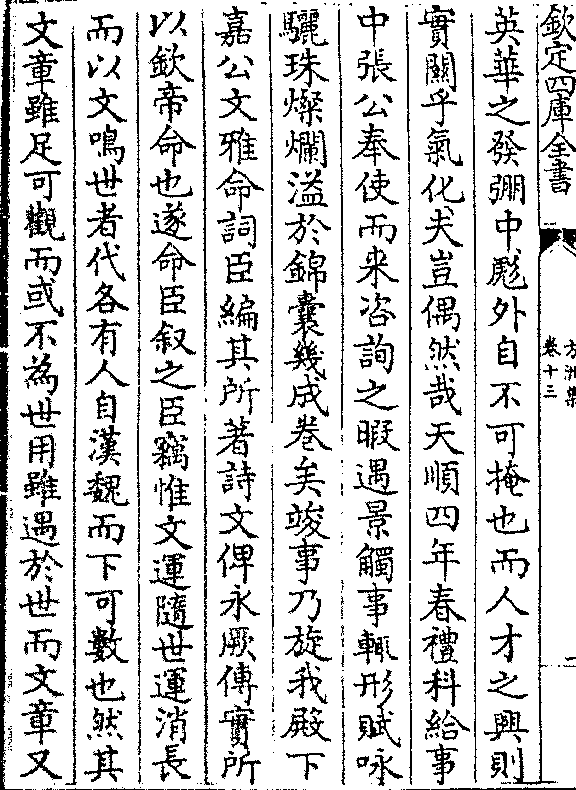 欽定四庫全書
方洲集
卷十三
英華之發弸中彪外自不可掩也而人才之興則
實關乎氣化夫豈偶然哉天順四年春禮科給事
中張公奉使而来咨詢之暇遇景觸事輒形賦咏
驪珠燦爛溢於錦囊幾成卷矣竣事乃旋我殿下
嘉公文雅命詞臣編其所著詩文俾永厥傳實所
以欽帝命也遂命臣叙之臣竊惟文運隨世運消長
而以文鳴世者代各有人自漢魏而下可數也然其
文章雖足可觀而或不為世用雖遇於世而文章又